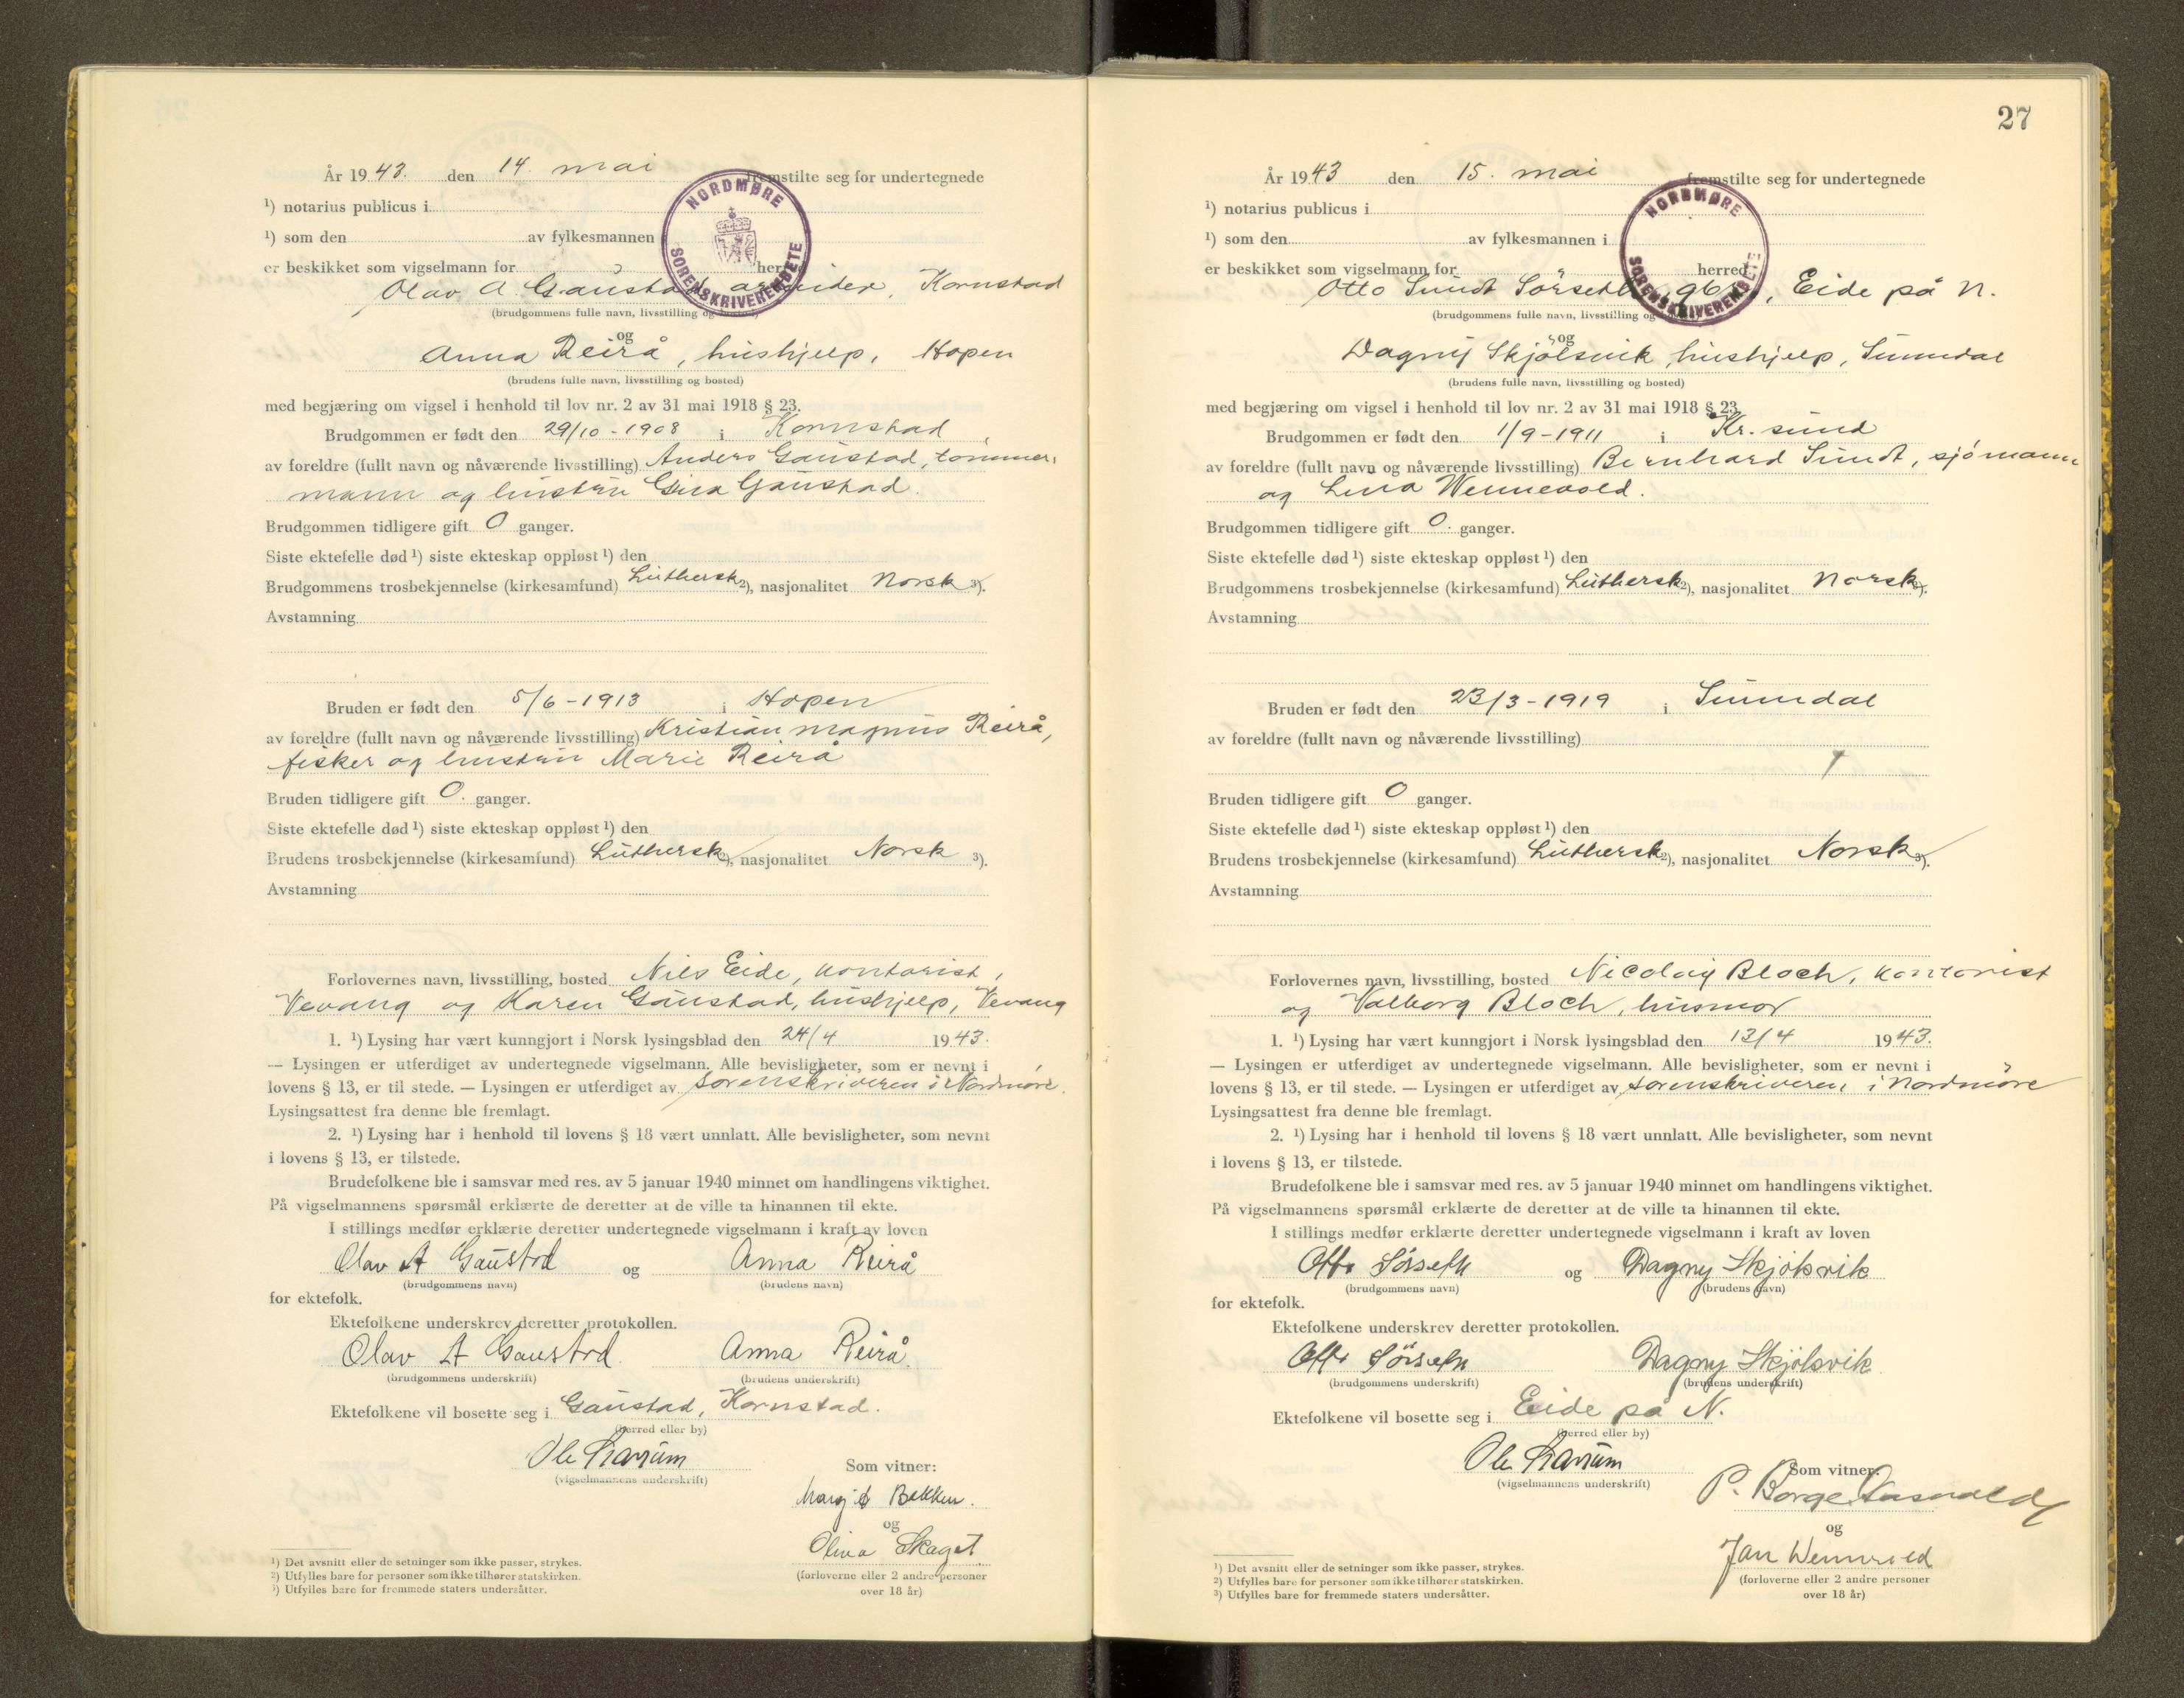 År 1943. den 14. mai fremstilte seg for undertegnede
¹) notarius publicus i
¹) som den av fylkesmannen
er beskikket som vigselmann for herred
NORDMØRE SORENSKRIVEREMBETE
Olav A Gaustad, arbeider, Kornstad
(brudgommens fulle navn, livsstilling og bosted)
og
Anna Reirå, hushjelp, Hopen
(brudens fulle navn, livsstilling og bosted)
med begjæring om vigsel i henhold til lov nr. 2 av 31 mai 1918 § 23.
Brudgommen er født den 29/10-1908 i Kornstad,
av foreldre (fullt navn og nåværende livsstilling) Anders Gaustad, tømmer-
mann og hustru Gina Gaustad.
Brudgommen tidligere gift 0 ganger.
Siste ektefelle død ¹) siste ekteskap oppløst ¹) den
Brudgommens trosbekjennelse (kirkesamfund) Luthersk ²), nasjonalitet Norsk ³).
Avstamning
Bruden er født den 5/6-1913 i Hopen
av foreldre (fullt navn og nåværende livsstilling) Kristian Magnus Reirå,
fisker og hustru Marie Reirå
Bruden tidligere gift 0. ganger.
Siste ektefelle død ¹) siste ekteskap oppløst ¹) den
Brudens trosbekjennelse (kirkesamfund) Luthersk ²), nasjonalitet Norsk ³).
Avstamning
Forlovernes navn, livsstilling, bosted Nils Eide, kontorist,
Vevang og Karen Gaustad, hushjelp, Vevang
1. ¹) Lysing har vært kunngjort i Norsk lysingsblad den 24/4 1943.
— Lysingen er utferdiget av undertegnede vigselmann. Alle bevisligheter, som er nevnt i
lovens § 13, er til stede. — Lysingen er utferdiget av sorenskriveren i Nordmøre.
Lysingsattest fra denne ble fremlagt.
2. ¹) Lysing har i henhold til lovens § 18 vært unnlatt. Alle bevisligheter, som nevnt
i lovens § 13, er tilstede.
Brudefolkene ble i samsvar med res. av 5 januar 1940 minnet om handlingens viktighet.
På vigselmannens spørsmål erklærte de deretter at de ville ta hinannen til ekte.
I stillings medfør erklærte deretter undertegnede vigselmann i kraft av loven
Olav A Gaustad og Anna Reirå
(brudgommens navn) (brudens navn)
for ektefolk.
Ektefolkene underskrev deretter protokollen.
Olav A Gaustad. Anna Reirå.
(brudgommens underskrift) (brudens underskrift)
Ektefolkene vil bosette seg i Gaustad, Kornstad.
(herred eller by)
Ole
(vigselmannens underskrift)
Som vitner:
Margit Bakken.
og
Oliva Skaget
(forloverne eller 2 andre personer
over 18 år)
¹) Det avsnitt eller de setninger som ikke passer, strykes.
²) Utfylles bare for personer som ikke tilhører statskirken.
³) Utfylles bare for fremmede staters undersåtter.
27
År 1943 den 15. mai fremstilte seg for undertegnede
¹) notarius publicus i
¹) som den av fylkesmannen i
er beskikket som vigselmann for herred
NORDMØRE SORENSKRIVEREMBETE
Otto Sundt Sørseth, gbr., Eide på N.
(brudgommens fulle navn, livsstilling og
og
Dagny Skjølsvik, hushjelp, Sunndal
(brudens fulle navn, livsstilling og bosted)
med begjæring om vigsel i henhold til lov nr. 2 av 31 mai 1918 § 23.
Brudgommen er født den 1/9-1911 i Kr. sund
av foreldre (fullt navn og nåværende livsstilling) Bernhard Sundt, sjømann
og Lina Wennevold.
Brudgommen tidligere gift 0. ganger.
Siste ektefelle død ¹) siste ekteskap oppløst ¹) den
Brudgommens trosbekjennelse (kirkesamfund) Luthersk ²), nasjonalitet Norsk ³).
Avstamning
Bruden er født den 23/3-1919 i Sunndal
av foreldre (fullt navn og nåværende livsstilling)
Bruden tidligere gift 0 ganger.
Siste ektefelle død ¹) siste ekteskap oppløst ¹) den
Brudens trosbekjennelse (kirkesamfund) Luthersk ²), nasjonalitet Norsk ³).
Avstamning
Forlovernes navn, livsstilling, bosted Nicolay Bloch, kontorist
og Valborg Bloch, husmor
1. ¹) Lysing har vært kunngjort i Norsk lysingsblad den 13/4 1943.
— Lysingen er utferdiget av undertegnede vigselmann. Alle bevisligheter, som er nevnt i
lovens § 13, er til stede. — Lysingen er utferdiget av sorenskriveren i Nordmøre
Lysingsattest fra denne ble fremlagt.
2. ¹) Lysing har i henhold til lovens § 18 vært unnlatt. Alle bevisligheter, som nevnt
i lovens § 13, er tilstede.
Brudefolkene ble i samsvar med res. av 5 januar 1940 minnet om handlingens viktighet.
På vigselmannens spørsmål erklærte de deretter at de ville ta hinannen til ekte.
I stillings medfør erklærte deretter undertegnede vigselmann i kraft av loven
Otto Sørseth og Dagny Skjølsvik
(brudgommens navn) (brudens navn)
for ektefolk.
Ektefolkene underskrev deretter protokollen.
Otto Sørseth Dagny Skjølsvik
(brudgommens underskrift) (brudens underskrift)
Ektefolkene vil bosette seg i Eide på N.
(herred eller by)
Ole
(vigselmannens underskrift)
Som vitner:
P. Borge
og
Jan Wennevold
(forloverne eller 2 andre personer
over 18 år)
¹) Det avsnitt eller de setninger som ikke passer, strykes.
²) Utfylles bare for personer som ikke tilhører statskirken.
³) Utfylles bare for fremmede staters undersåtter.